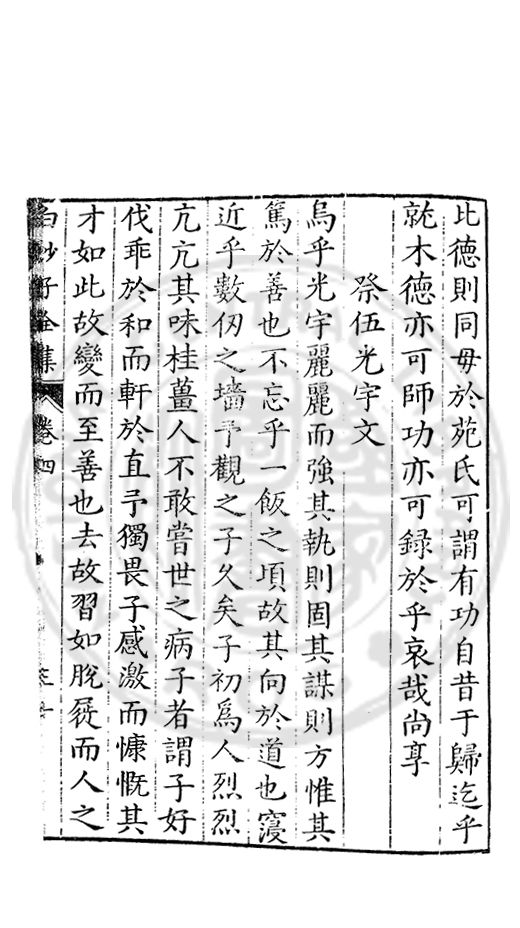 比德則同毋於苑氏可謂有功自昔于歸迄乎
就木德亦可師功亦可録於乎哀哉尚享
祭伍光宇文
烏乎光宇麗麗而強其執則固其謀則方惟其
篤於善也不忘乎一飯之頃故其向於道也寖
近乎數仞之墻予觀之子久矣子初爲人烈烈
亢亢其味桂薑人不敢嘗世之病子者謂子好
伐乖於和而軒於直予獨畏子感激而慷慨其
才如此故變而至善也去故習如脫屣而人之
白沙子全集 卷四